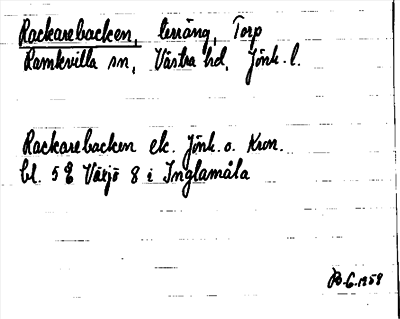 Rackarebacken, terräng, Torp
Ramkvilla sn, Västra hd, Jönk. l.
Rackarebacken ek. Jönk. o. Kron.
bl. 5 E Växjö 8 i Inglamåla
B.G. 1958